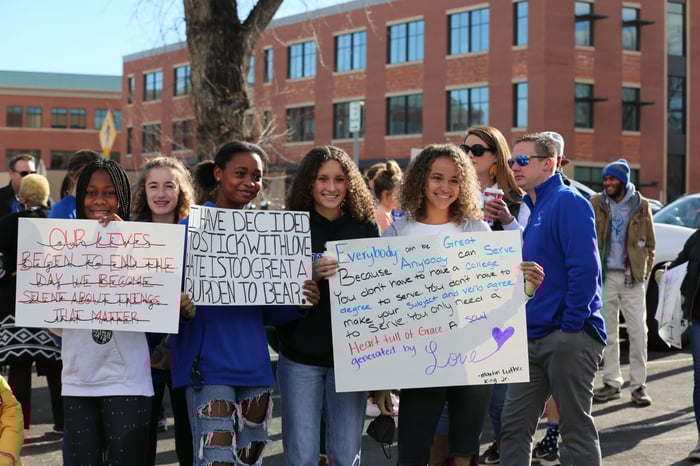 OUR LIVES
BEGIN TO END THE
DAY WE BECOME
SILENT ABOUT THINGS
THAT MATTER
I HAVE DECIDED
TO STICK WITH LOVE
HATE IS TOO GREAT A
BURDEN TO BEAR
EVERYBODY can be Great
Because Anybody can Serve
You don't have to have a college
degree to serve. You don't have to
make your subject and verb agree
to serve. You only need a
Heart full of Grace A soul
generated by Love
-Martin Luther
King Jr.